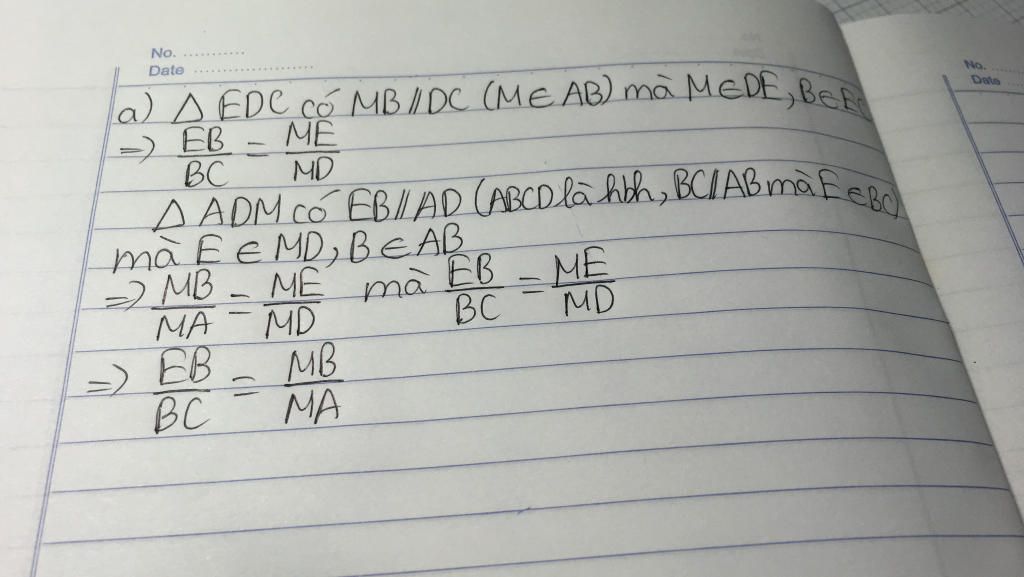 No. ............
Date ....................
No. ....
Date ....
a) △ EDC có MB // DC (M ∈ AB) mà M ∈ DE, B ∈ EC
=> EB/BC = ME/MD
△ ADM có EB // AD (ABCD là hbh, BC // AB mà E ∈ BC)
mà E ∈ MD, B ∈ AB
=> MB/MA = ME/MD mà EB/BC = ME/MD
=> EB/BC = MB/MA